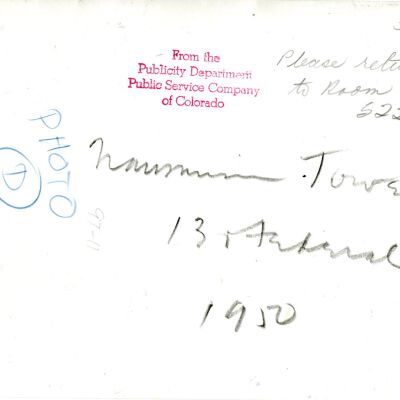 From the
Publicity Department
Public Service Company
of Colorado
Please retu
to Room
522
PHOTO
D
97-11
Transmission Towe
13 + Federal
1950